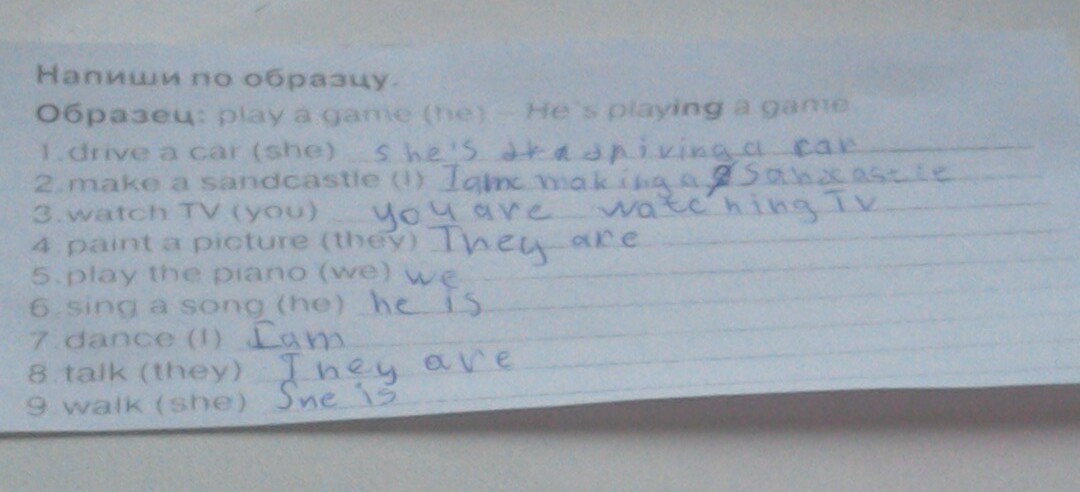 Напиши по образцу.
Образец: play a game (he) - He's playing a game.
1. drive a car (she) she's driving a car
2. make a sandcastle (I) I am making a
3. watch TV (you) you are watching TV
4. paint a picture (they) They are
5. play the piano (we) we
6. sing a song (he) he is
7. dance (I) I am
8. talk (they) They are
9. walk (she) She is